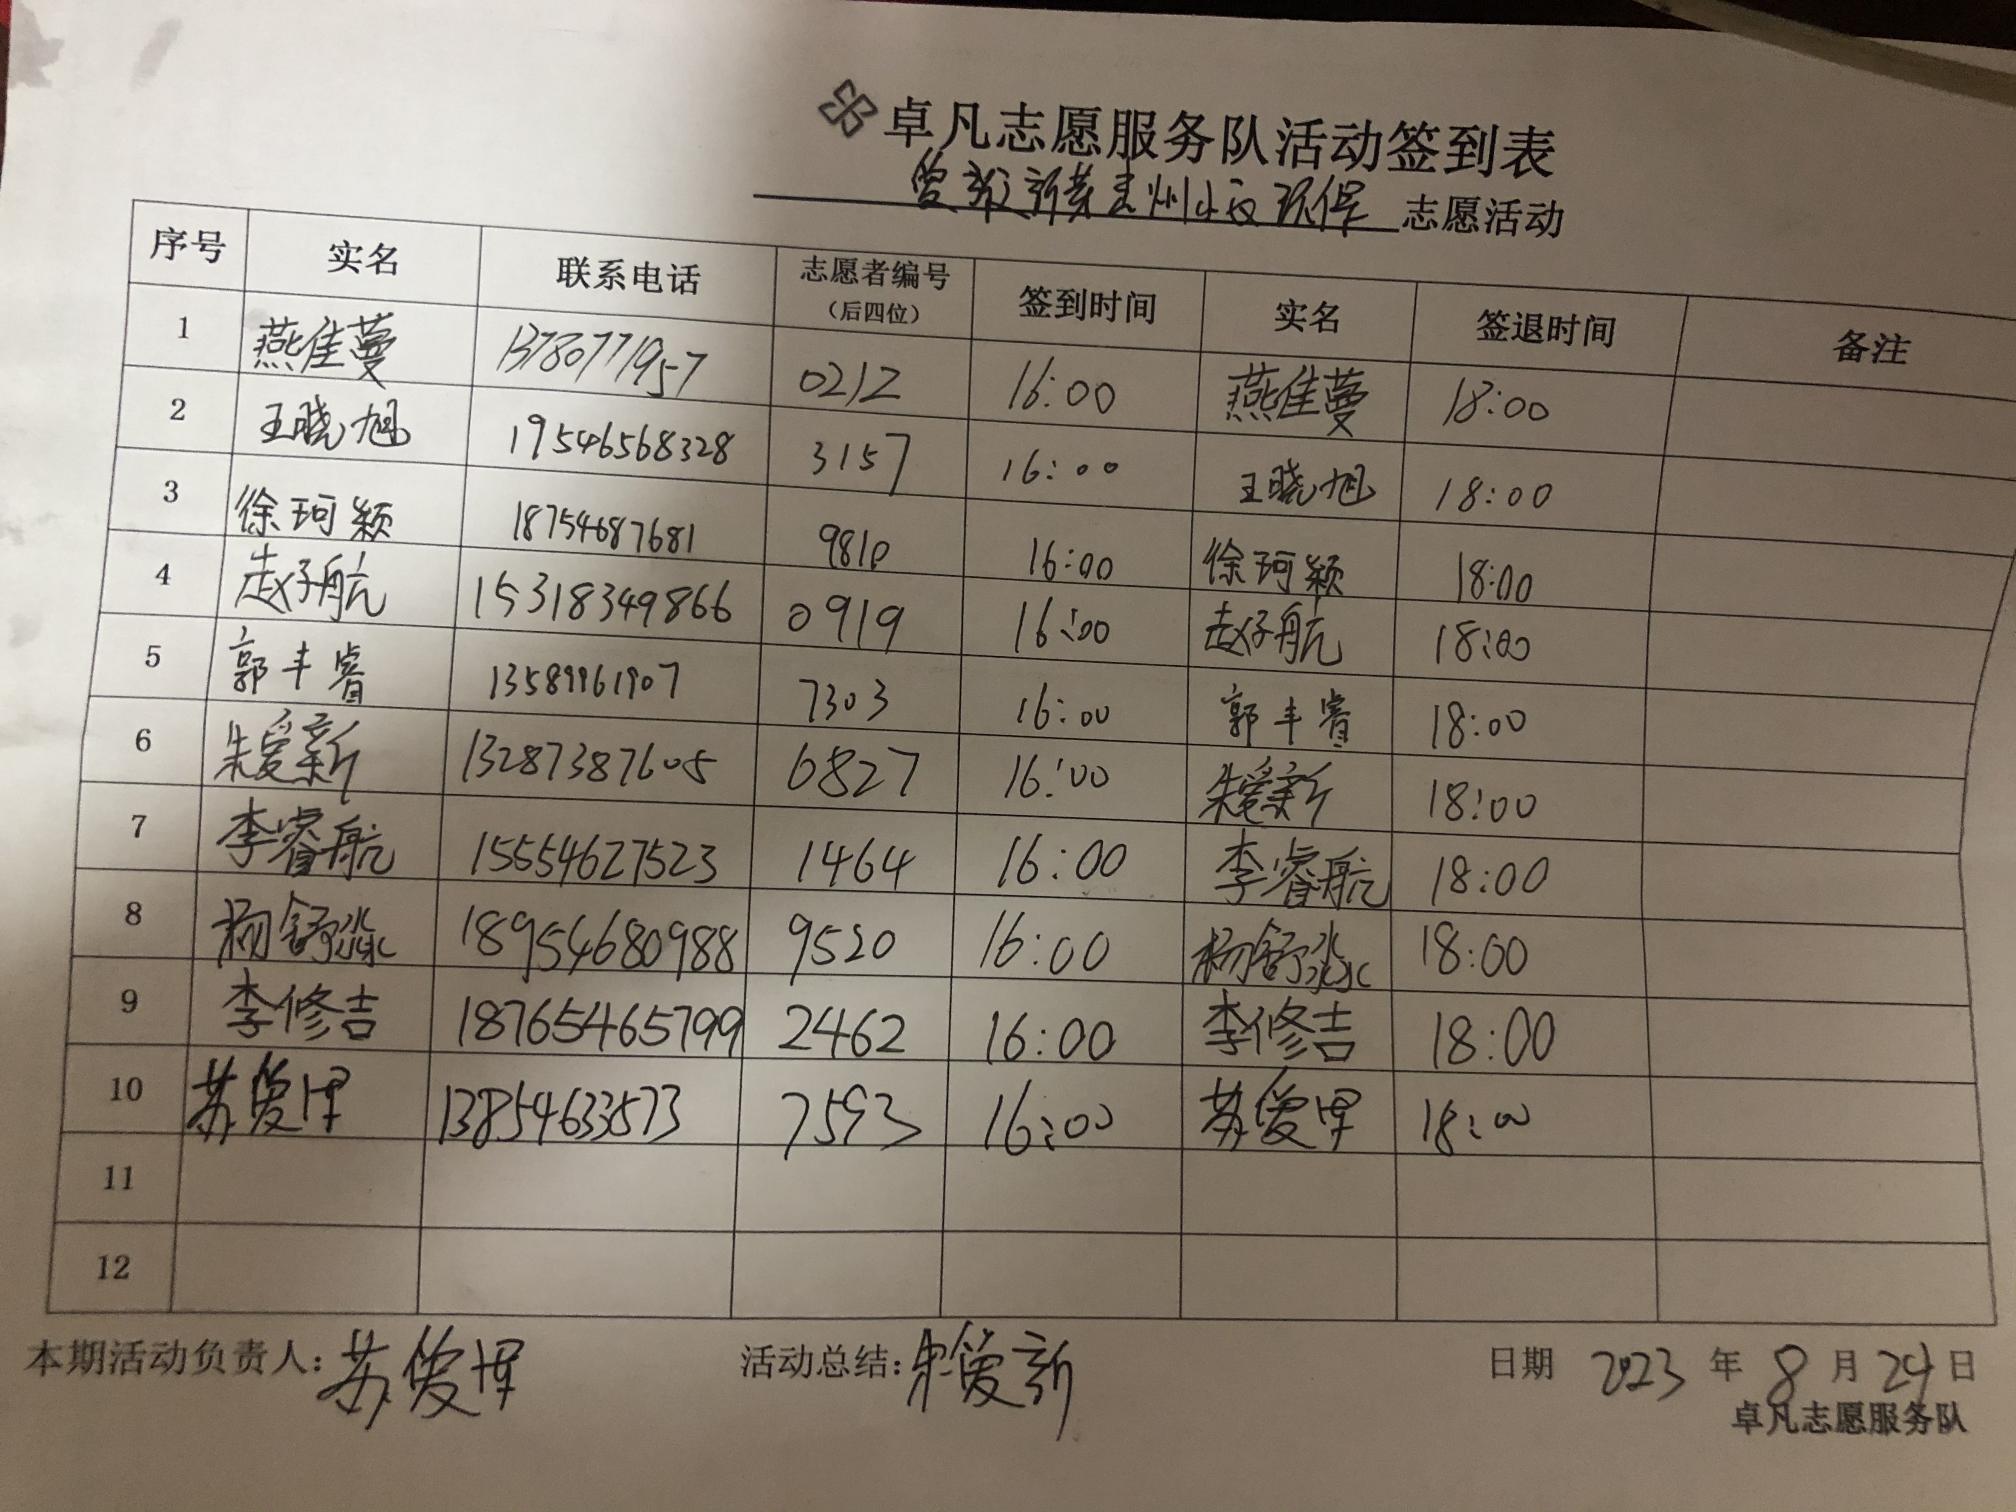 卓凡志愿服务队活动签到表
志愿活动
序号 实名 联系电话 志愿者编号（后四位） 签到时间 实名 签退时间 备注
1 燕佳蔓 13780771957 0212 16:00 燕佳蔓 18:00
2 王晓旭 19546568328 3157 16:00 王晓旭 18:00
3 徐珂颖 18754687681 9810 16:00 徐珂颖 18:00
4 赵子航 15318349866 0919 16:00 赵子航 18:00
5 郭丰睿 13589961907 7303 16:00 郭丰睿 18:00
6 朱爱新 13287387605 6827 16:00 朱爱新 18:00
7 李睿航 15554627523 1464 16:00 李睿航 18:00
8 杨舒淼 18954680988 9520 16:00 杨舒淼 18:00
9 李修吉 18765465799 2462 16:00 李修吉 18:00
10 苏 13854633573 7593 16:00 苏 18:00
11
12
本期活动负责人：苏 活动总结：朱爱新 日期 2023 年 8 月 24 日
卓凡志愿服务队